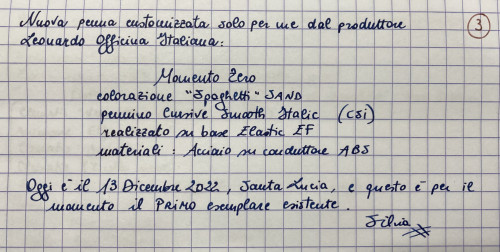 Nuova penna customizzata solo per me dal produttore
3
Leonardo Officina Italiana:
Momento Zero
colorazione "Spaghetti" SAND
pennino Cursive Smooth Italic (CSi)
realizzato su base Elastic EF
materiali: Acciaio su conduttore ABS
Oggi è il 13 Dicembre 2022, Santa Lucia, e questo è per il
momento il PRIMO esemplare esistente.
Silvia